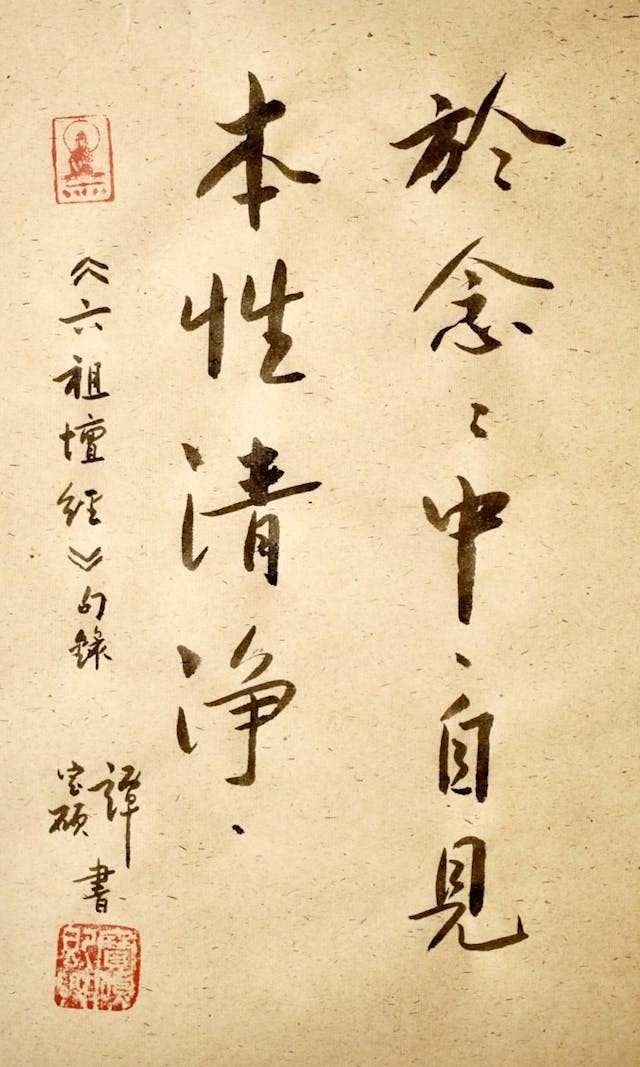 於念々中、自見
本性清淨.
《六祖壇經》句錄
譚寶碩書